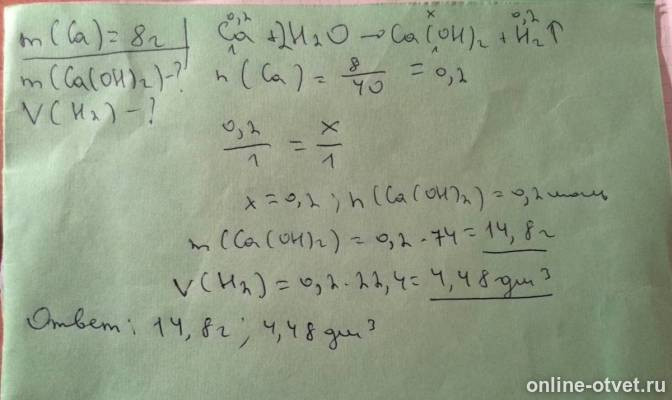 m(Ca)=8г
m(Ca(OH)₂)-?
V(H₂)-?
0,2 x 0,2
Ca+2H₂O→Ca(OH)₂+H₂↑
1 1
n(Ca)=8/40=0,2
0,2/1=x/1
x=0,2; n(Ca(OH)₂)=0,2моль
m(Ca(OH)₂)=0,2·74=14,8г
V(H₂)=0,2·22,4=4,48дм³
Ответ: 14,8г; 4,48дм³
online-otvet.ru